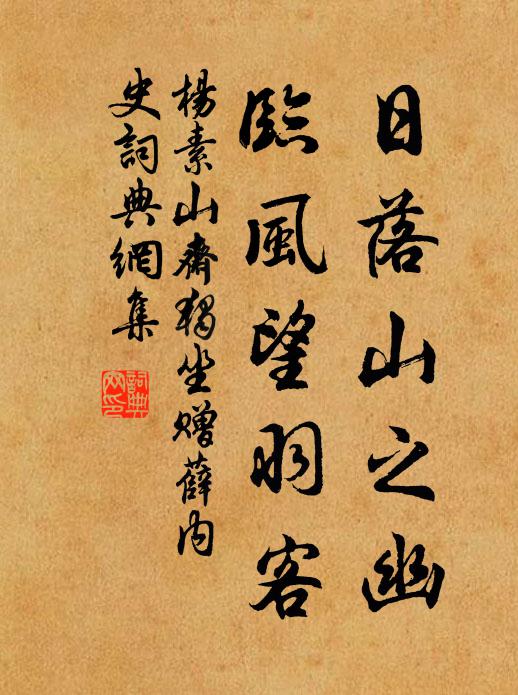 日落山之幽
臨風望羽客
楊素山齋獨坐贈薛內
史詞典網集
詞典
网印